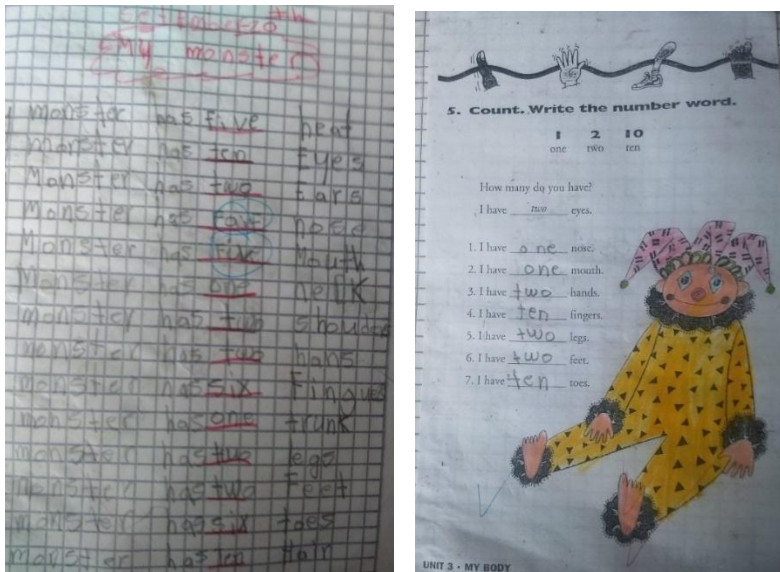 september 20th
My monster
monster has five heat
monster has ten Eyes
Monster has two Ears
Monster has four nose
Monster has five Mouth
Monster has one nenk
monster has two shoulders
monster has two hans
monster has six Fingues
monster has one trunk
monster has two legs
monster has two Feet
monster has six toes
monster has ten Hair
5. Count. Write the number word.
1 2 10
one two ten
How many do you have?
I have two eyes.
1. I have one nose.
2. I have one mouth.
3. I have two hands.
4. I have ten fingers.
5. I have two legs.
6. I have two feet.
7. I have ten toes.
UNIT 3 • MY BODY